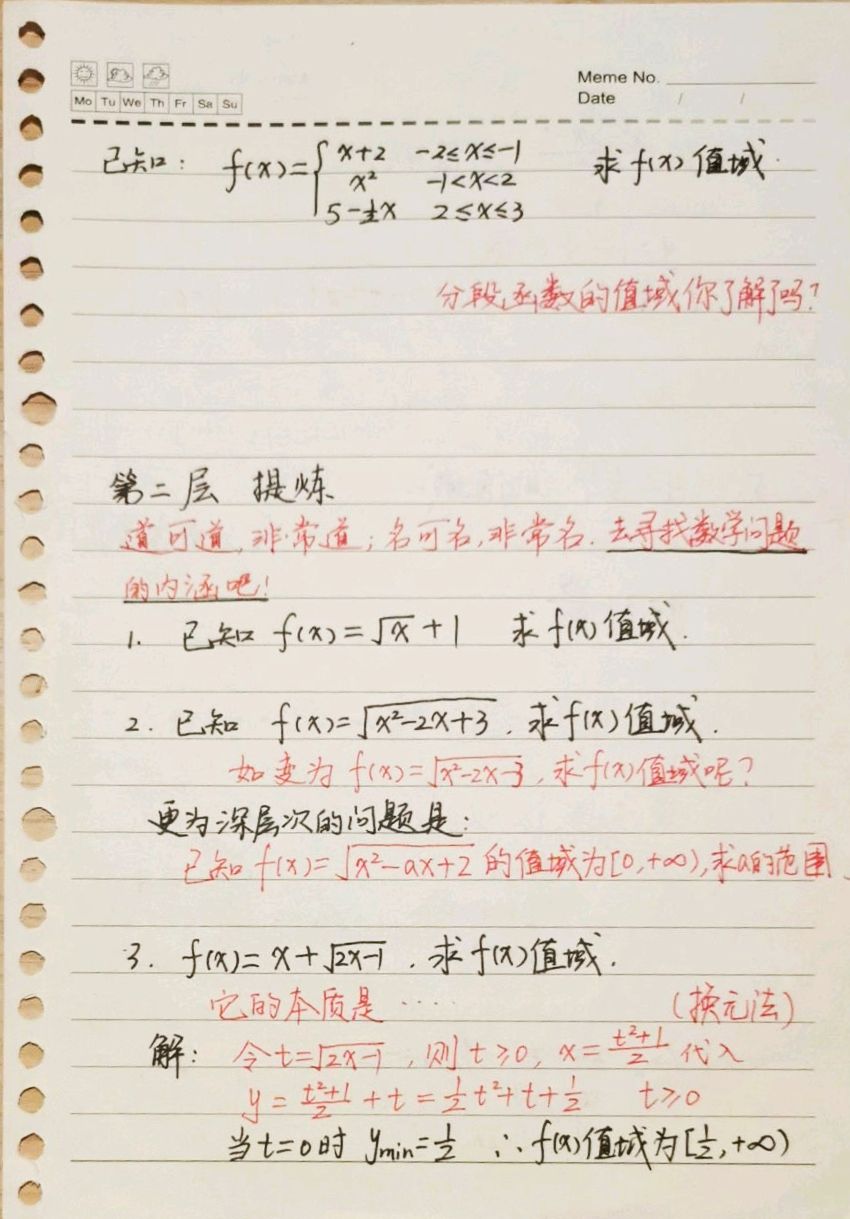 Meme No.
Mo Tu We Th Fr Sa Su
Date / /
已知: f(x)={ x+2 -2≤x≤-1 求f(x)值域.
x² -1<x<2
5-½x 2≤x≤3
分段函数的值域你了解了吗?
第二层 提炼
道可道,非常道;名可名,非常名.去寻找数学问题
的内涵吧!
1. 已知 f(x)=√x+1 求f(x)值域.
2. 已知 f(x)=√(x²-2x+3), 求f(x)值域.
如变为 f(x)=√(x²-2x-3), 求f(x)值域呢?
更为深层次的问题是:
已知f(x)=√(x²-ax+2)的值域为[0,+∞),求a的范围.
3. f(x)=x+√(2x-1), 求f(x)值域.
它的本质是 ····· (换元法)
解: 令t=√(2x-1), 则t≥0, x=(t²+1)/2 代入
y=(t²+1)/2+t=½t²+t+½ t≥0
当t=0时 ymin=½ ∴f(x)值域为[½,+∞)